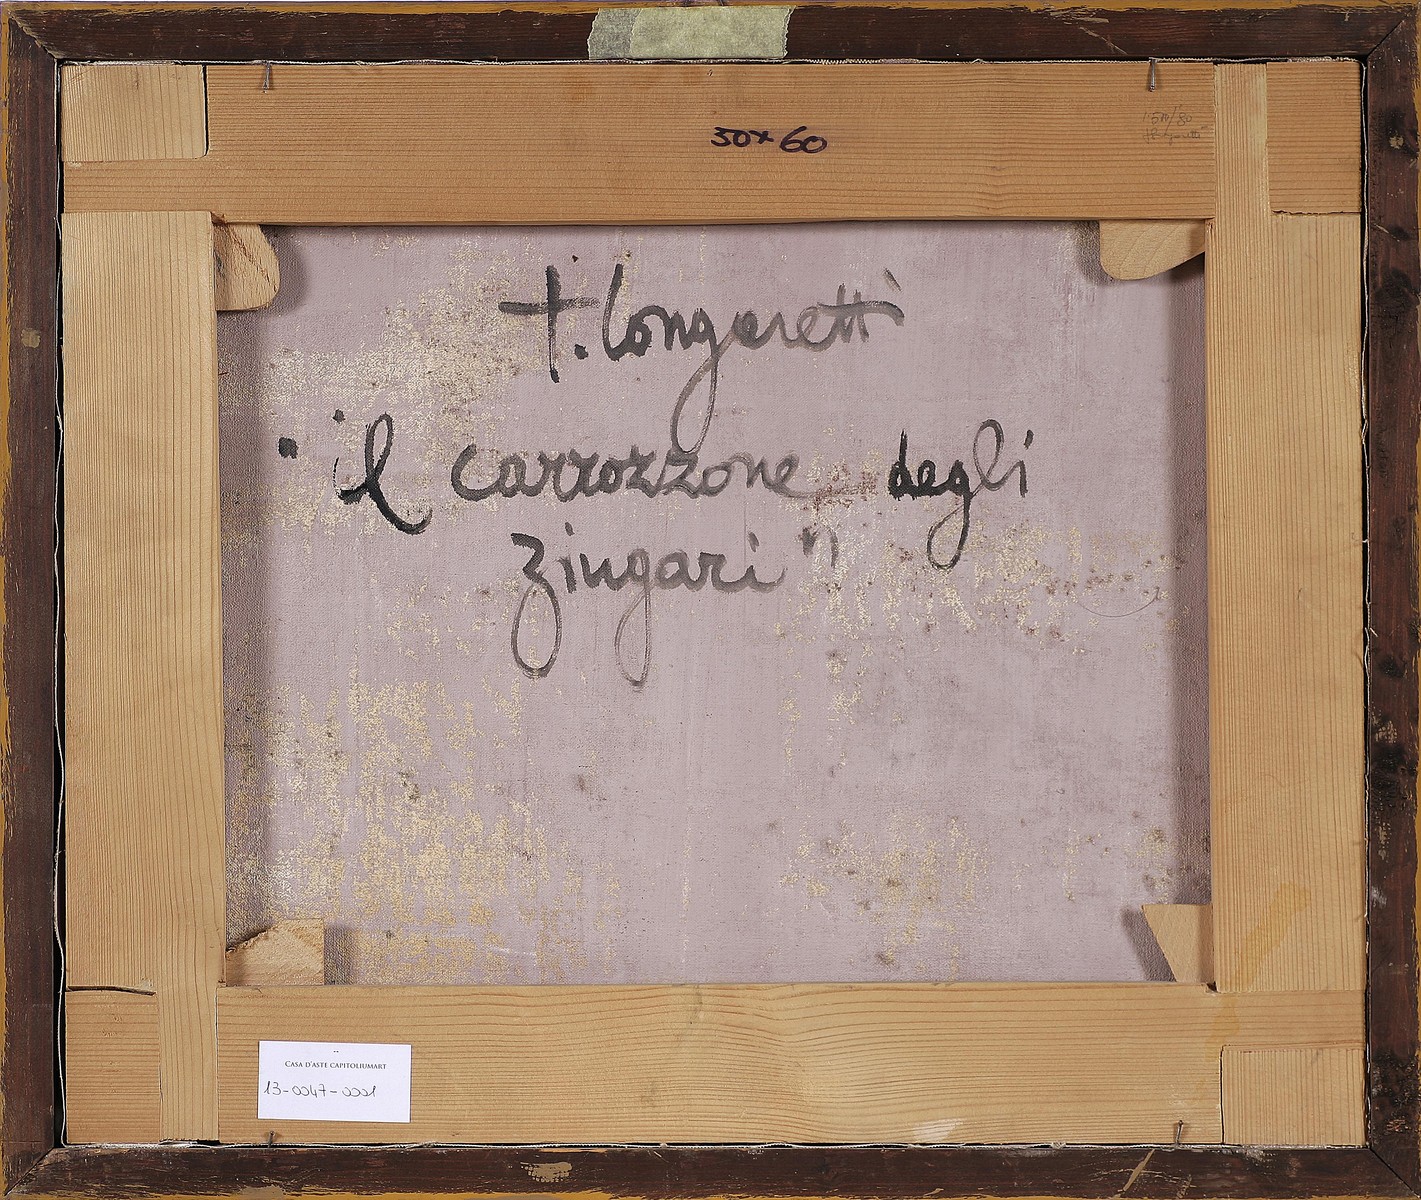 50x60
t. longaretti
"il carrozzone degli
zingari"
CASA D'ASTE CAPITOLIUMART
13-0047-0001